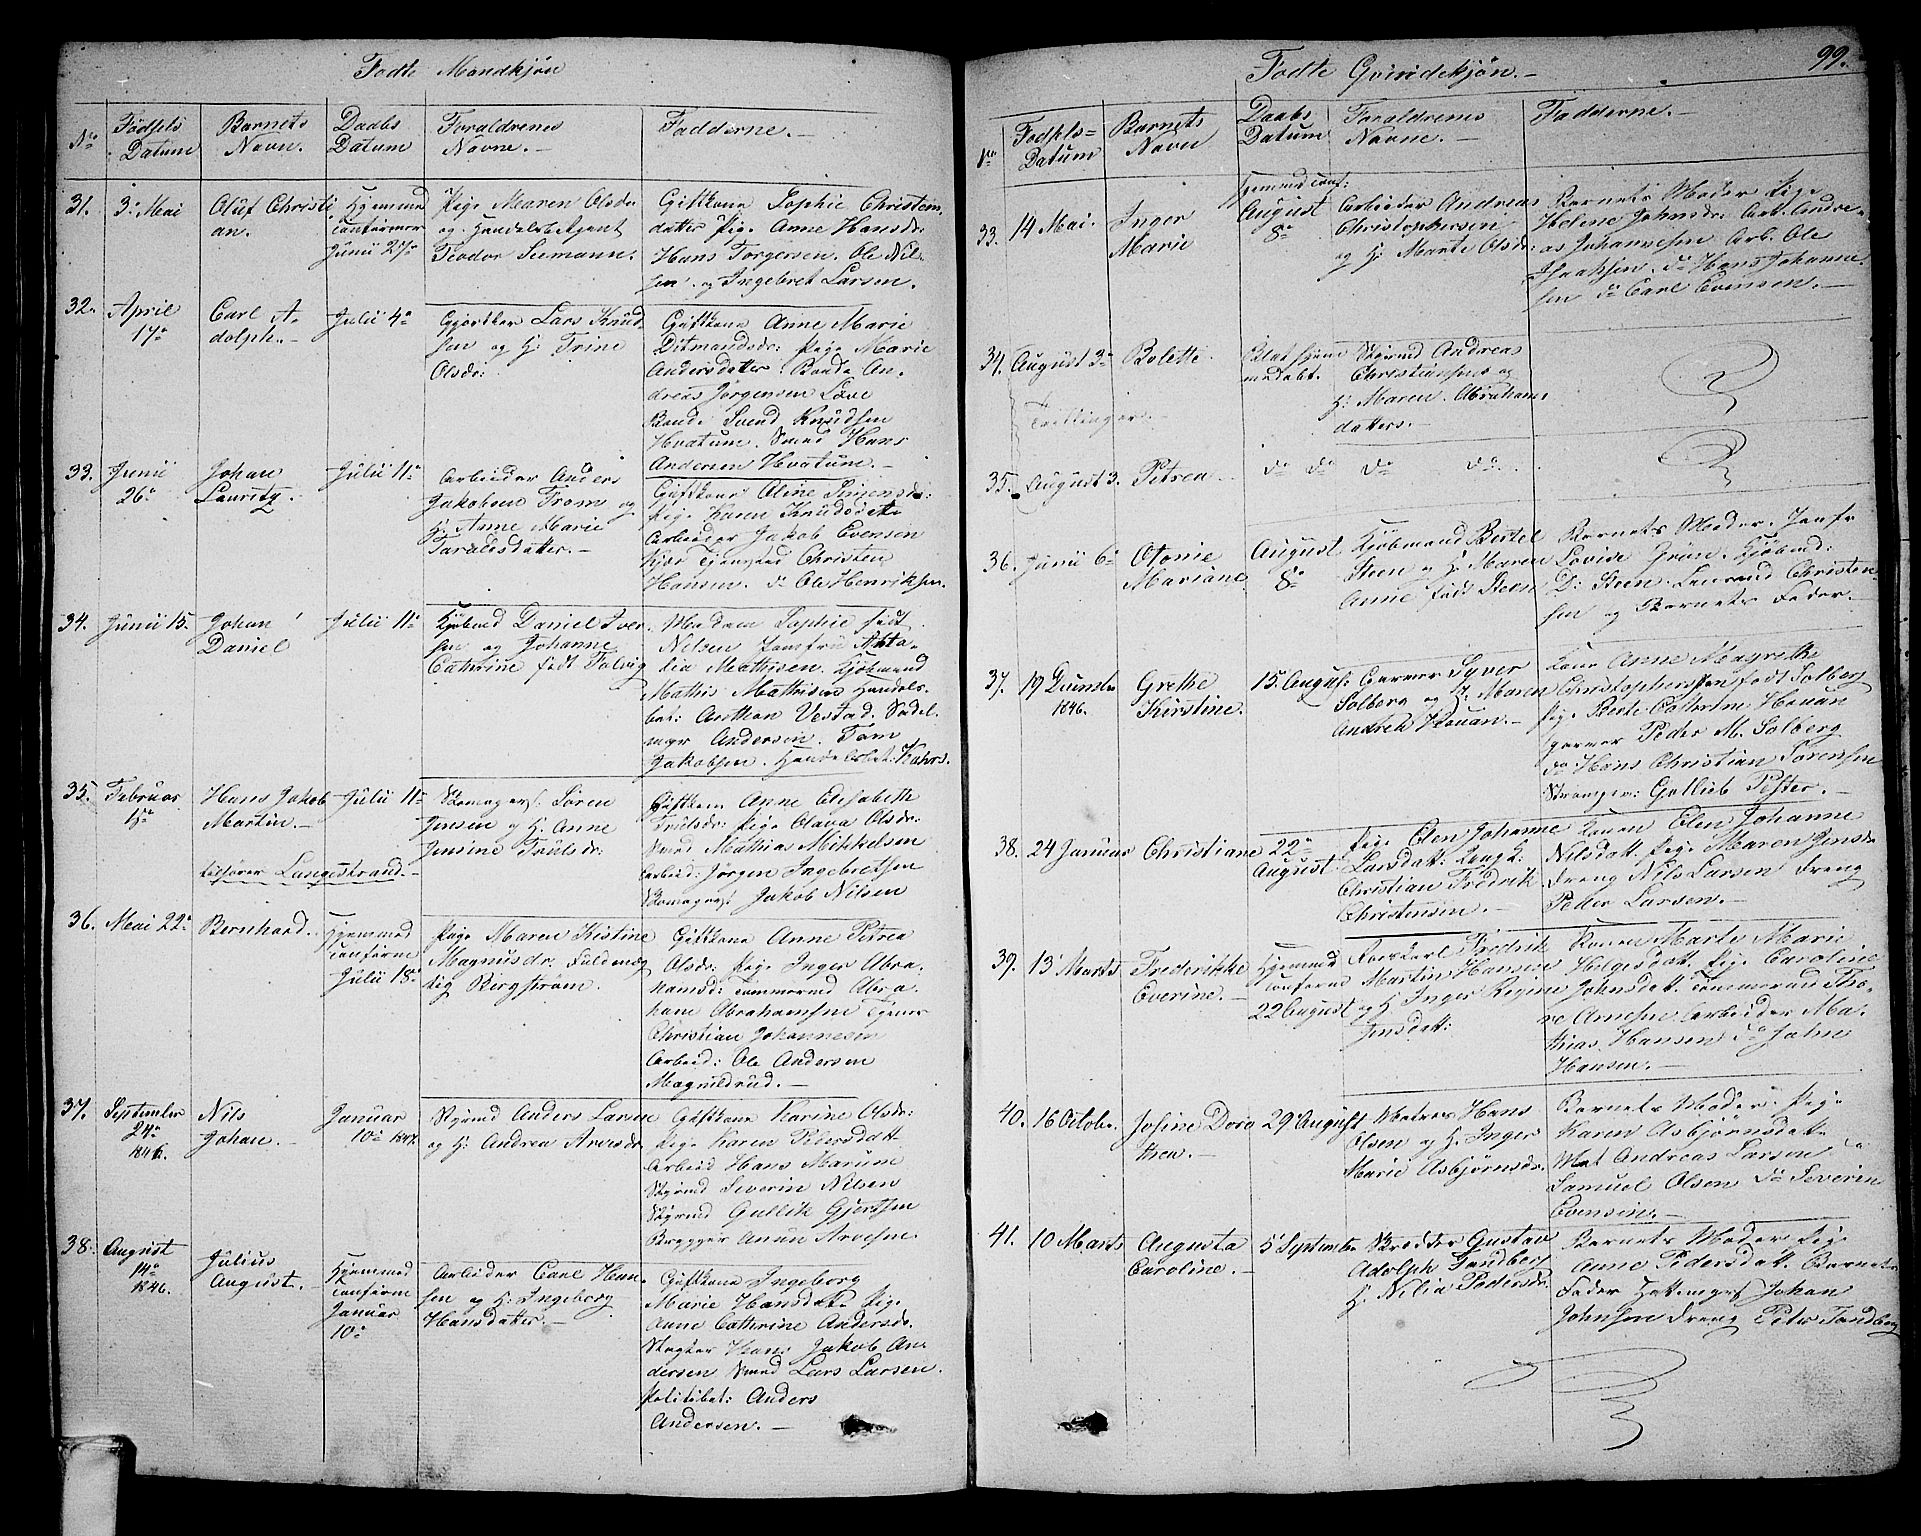 Fødte Mandkjøn
No
Fødsels Datum
Barnets Navn.
Daabs Datum
Foraldrenes Navne. –
Fadderne. –
31.
3. Mai
Oluf Christi
an.
Hjemmed
Confirmer
Junii 27de
Pige Maren Olsdr
og Handels Agent
Teodor Seemann.
Giftkone Sophie Christen
datter Pige Anne Hansdr:
Hans Torgersen. Ole Nil-
sen. og Ingebret Larsen.
32.
April
17de
Carl A-
dolph. –
Julii 4de
Lars Knud
sen og H: Trine
Olsdr:
Giftkone Anne Marie
Ditmandsdr: Pige Marie
Andersdatter Bonde An-
dreas Jørgensen Løve
Bonde Svend Knudsen
Hvatum. Hans
Andersen Hvatum. –
33.
Junii
26de
Johan
Lauritz.
Julii 11de
Arbeider Anders
Jakobsen From og
H: Anne Marie
Taraldsdatter. –
Giftkone Oline
Pige Karen Knudsdatt
Arbeider Jakob Evensen
Kjør Christen
Hansen. do Ole Henriksen.
34.
Junii 15.
Johan
Daniel
Julii 11de
Kjøbmd Daniel Iver
sen og Johanne
Cathrine født Falvig
Madam Sophie født
Nilsen Jomfru Atta-
lia Mathisen. Kjøbmand
Mathis Mathisen Handels-
bet: Anthon Vestad. Sadel-
mgr Andersen. Tom
Jakobsen. Handelsbet: Kahrs.
35.
Februar
15de
Hans Jakob
Martin. –
tilhører Langestrand. –
Julii 11de
Skomagers: Søren
Jensen og H. Anne
Jensine Trulsdr:
Giftkone Anne Elisabeth
Trulsdr: Pige Olava Olsdr:
Mathias Mikkelsen
Arbeid: Jørgen Ingebretsen
Skomagers: Jakob Nilsen
36.
Mai 22de
Bernhard.
Hjemmed
Confirme
Julii 18de
Pige Maren Kistine
Magnusdr. Fuldmæg
tig Bergstrøm.
Giftkone Anne Petrea
Olsdr: Pige Inger Abra-
hamsd: Tømmermd Abra-
ham Abrahamsen Tjener
Christian Johannesen
Arbeid: Ole Andersen
Magnildrud. –
37.
September
24de
1846.
Nils
Johan. –
Januar
10de 1847.
Styrmd Anders Larsen
og H: Andrea Arvesdr.
Giftkone Karine Olsdr:
Pige Karen Pedersdatt
Arbeid Hans Marum
Styrmd Severin Nilsen
Styrmd Gullik Gjertsen
Brygger Anun Arvesen.
38.
August
14de
1846.
Julius
August. –
Hjemmed
Confirme
Januar
10de
Arbeider Carl Han-
sen og H: Ingeborg
Hansdatter. –
Giftkone Ingeborg
Marie Hansdatt Pige
Anne Cathrine Andersdr.
Slagter Hans Jakob An-
dersen Lars Larsen.
Politibet: Anders
Andersen. –
Fødte Qvindekjøn. –
99.
No
Fødsels-
Datum
Barnets
Navn
Daabs
Datum
Foraldrenes
Navne. –
Fadderne. –
33.
14 Mai.
Inger
Marie
Hjemmd conf:
August
8de
Arbeider Andreas
Christophersen
og H: Marte Olsdr:
Barnets Moder Pige
Helene Johnsdr: Arb. Andre-
as Johannesen Arb. Ole
Isaaksen. do Hans Johanne-
sen do Carl Evensen. –
34.
August 3de
Trillinger. –
Bolette
Blot hjem
medøbt.
Styrmd Andreas
Christiansen og
H: Maren Abrahams
datter. –
35.
August 3.
Petrea –
do do do do
36.
Junii 6de
Otonie
Mariane
August
8de
Kjøbmand Bertel
Steen og H: Maren
Anne født Steen
Barnets Moder. Jomfr
Lovise Grøn. Kjøbmd:
D: Steen. Christen-
sen og Barnets Fader. –
37.
19
1846.
Grethe
Kirstine.
15. August
Garver Syver
Solberg og H. Maren
Andrea Houan. –
Kone Anne Magrethe
Christophersen født Solberg
Pige Berte Cathrine Houan
garver Peder M. Solberg
do Hans Christian Sørensen
Gotlieb Pister. –
38.
24 Januar
Christiane
22de
August
Pige Elen Johanne
Larsdatt:
Christian Fredrik
Christensen. –
Konen Elen Johanne
Nilsdatt. Pige Maren Jensdr
Dreng Nils Larsen Dreng
Peder Larsen. –
39.
13 Marts
Frederikke
Everine. –
Hjemmed
Confermd
22 August
Fredrik
Martin Hansen
og H Inger Regine
Jensdatt:
Konen Marte Marie
Helgesdatt. Pige Caroline
Johnsdatt. Tømmermand Tho-
re Arnesen Arbeider Ma-
thias Hansen do John
Hansen. –
40.
16 Octobr.
Josine Doro
thea. –
29 August
Matros Hans
Olsen og H. Inger
Marie Asbjørnsdr.
Barnets Moder. Pige
Karen Asbjørnsdatt
Mat Andreas Larsen do
Samuel Olsen do Severin
Evensen. –
41.
10 Marts
Augusta
Caroline. –
5 Septembr
Skrædder Gustav
Adolph Sandberg
H. Nilia Pedersdr.
Barnets Moder Pige
Anne Pedersdatt. Barnets
Fader Johan
Johnsen Dreng Peter Sandberg